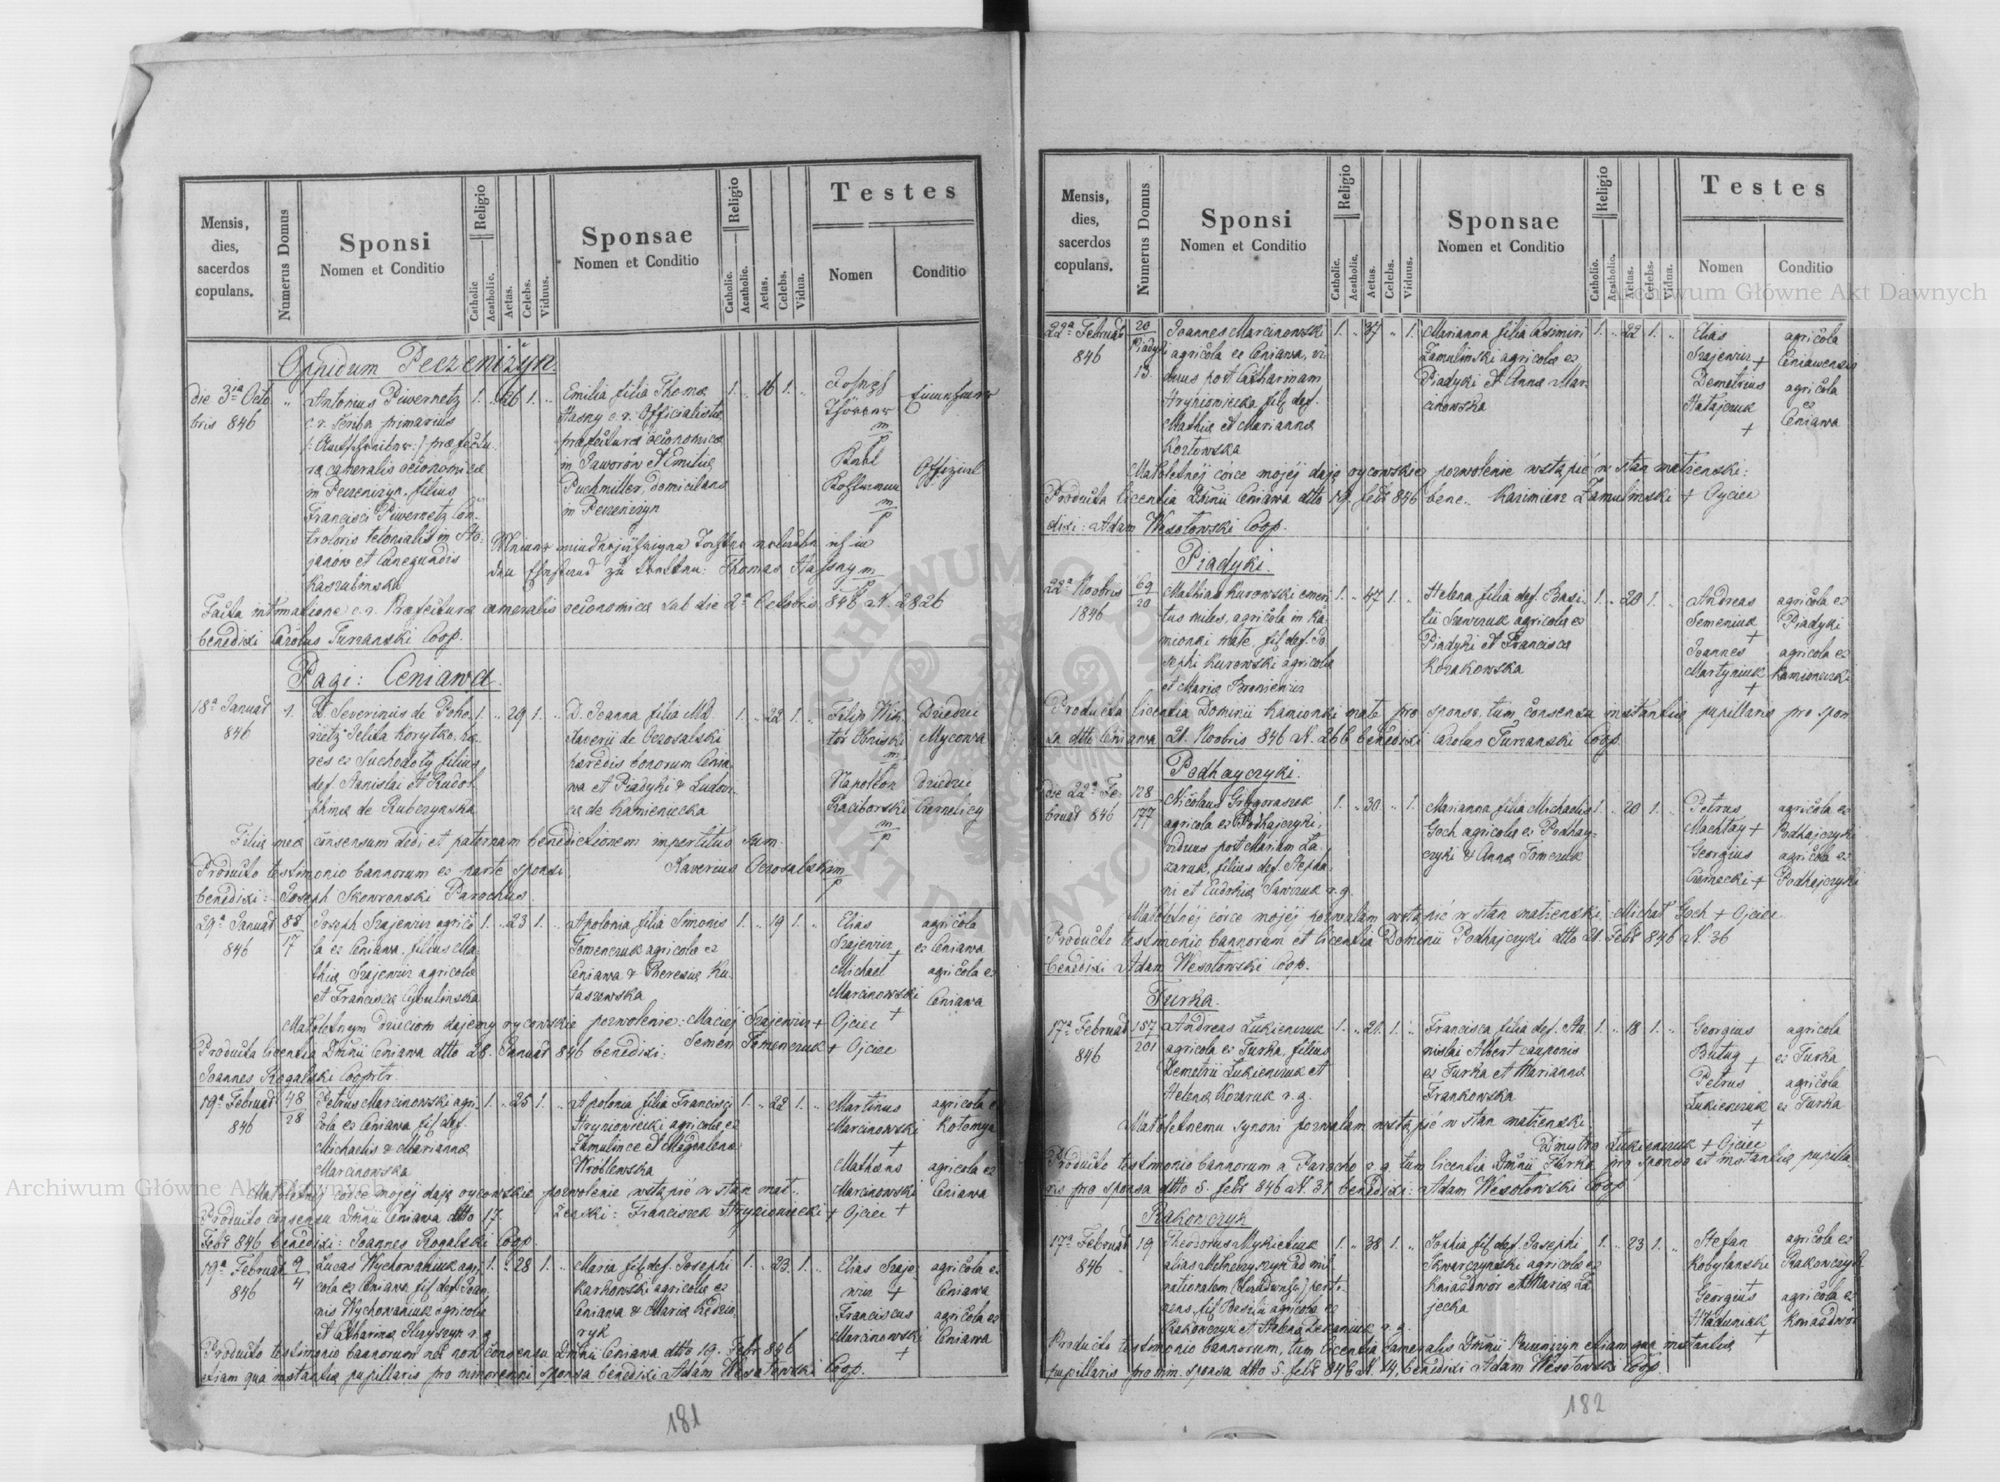 Mensis,
dies,
sacerdos
copulans.
Numerus Domus
Sponsi
Nomen et Conditio
Religio
Catholic.
Acatholic.
Aetas.
Celebs.
Viduus.
Sponsae
Nomen et Conditio
Religio
Catholic.
Acatholic.
Aetas.
Celebs.
Vidua.
Testes
Nomen
Conditio
Oppidum Peczeniżyn.
die 3tia Octo
bris 846
Antonius Piwernetz
c. r. Scriba primarius
praefectu
ra cameralis oeconomica
in Peczeniżyn, filius
Francisci Piwernetz Con
troloris telonialis in Sto
janów et Cunegundis
Kaszubinska
1. 26 1.
Emilia filia Thoma
Hasny c. r. Officialista
praefectura oeconomica
in Jaworów et Emilia
Puchmiller, domicilans
in Peczeniżyn
1. 16 1.
Joseph
Offizial
Thomas Hassny mp
Facta informatione c. r. Praefectura cameralis oeconomica sub die 2a Octobris 846 N. 2826
benedixi Carolus Turzanski Coop.
Pagi: Ceniawa.
18a Januar
846
1.
D. Severinus de Poho
rętz Selita Korytko, ha
res ex Suchodoły filius
def. Stanislai et Rudol
phina de Rubczynska
1. 29 1.
D. Joanna filia M. D.
Xaverii de Ocosalski
haredis bonorum Cenia
wa et Piadyki & Ludovi
ca de Kamieniecka
1. 22 1.
Filip Wik
tor Obniski
mp
Dziedzic
Mycowa
Napoleon
Raciborski
mp
Dziedzic
Czernelicy
Filia mea consensum dedi et paternam benedictionem impertitus sum.
Xaverius Ocosalski mp
Producto testimonio bannorum ex parte sponsi
benedixi: Joseph Skowronski Parochus.
29a Januar
846
88
17
Joseph Szajewicz agrico
la ex Ceniawa, filius Ma
thia Szajewicz agricola
et Francisca Cybulinska
1. 23 1.
Apolonia filia Simonis
Tomenczuk agricola ex
Ceniawa & Theresia Ku
taszewska
1. 19 1.
Elias
Szajewicz +
agricola
ex Ceniawa
Michael
Marcinowski
+
agricola ex
Ceniawa
Małoletnym dzieciom dajemy oycowskie pozwolenie: Maciej Szajewicz + Ojciec
Semen Tomenczuk + Ojciec
Producto licentia Dominii Ceniawa ddto 28. Januar 846 benedixi:
Joannes Rogalski Cooprtr.
19a Februar
846
48
28
Petrus Marcinowski agri
cola ex Ceniawa fil. def.
Michaelis & Marianna
Marcinowska
1. 25 1.
Apolonia filia Francisci
Hryniowiecki agricola ex
Zamulince et Magdalena
Wroblewska
1. 22 1.
Martinus
Marcinowski
+
agricola ex
Kołomya
Mathaeus
Marcinowski
+
agricola ex
Ceniawa
Małoletniej córce mojéj daję oycowskie pozwolenie wstąpić w stan mał
żenski: Franciszek Hryniowiecki + Ojciec
Producto consensu Dominii Ceniawa ddto 17.
Febr 846 benedixi: Joannes Rogalski Coop.
19a Februar
846
9
4
Lucas Wychowaniuk agri
cola ex Ceniawa fil. def. Joan
nis Wychowaniuk agricola
et Catharina Hryszyn r. g.
1. 28 1.
Maria fil. def. Josephi
Karkowski agricola ex
Ceniawa & Maria Kędzio
ryk
1. 23. 1.
Elias Szaje
wicz +
agricola ex
Ceniawa
Franciscus
Marcinowski
+
agricola ex
Ceniawa
Producto testimonio bannorum nec non consensu Dominii Ceniawa ddto 19. Febr 846
etiam qua instantia pupillaris pro minorenni sponsa benedixi Adam Wesołowski Coop.
181
Mensis,
dies,
sacerdos
copulans.
Numerus Domus
Sponsi
Nomen et Conditio
Religio
Catholic.
Acatholic.
Aetas.
Celebs.
Viduus.
Sponsae
Nomen et Conditio
Religio
Catholic.
Acatholic.
Aetas.
Celebs.
Vidua.
Testes
Nomen
Conditio
22a Februar
846
20
Piadyki
13.
Joannes Marcinowski
agricola ex Ceniawa, vi
duus post Catharinam
Hryniowiecka fil. def.
Mathia et Marianna
Kozłowska
1. 37 1.
Marianna filia Casimiri
Zamulinski agricola ex
Piadyki et Anna Mar
cinowska
1. 22 1.
Elias
Szajewicz +
agricola
Ceniawensis
Demetrius
Hatajczuk
+
agricola
ex
Ceniawa
Małoletnéj córce mojéj daję oycowskie pozwolenie wstąpić w stan małżenski:
Kazimierz Zamulinski + Oyciec
Producta licentia Dominii Ceniawa ddto 19. Febr 846 bene
dixi: Adam Wesołowski Coop.
Piadyki.
22a Novbris
1846
69
20
Mathias Kurowski emeri
tus miles, agricola in Ka
mionki małe, fil. def. Jo
sephi Kurowski agricola
et Maria Broniewicz
1. 47 1.
Helena filia def. Basi
lii Szewczuk agricola ex
Piadyki et Francisca
Kozakowska
1. 20 1.
Andreas
Semeniuk
+
agricola ex
Piadyki
Joannes
Martyniuk
+
agricola ex
Kamioneczki
Producta licentia Dominii Kamionki małe pro sponso, tum consensu instantia pupillaris pro spon
sa ddto Ceniawa 21. Novbris 846 N. 266 benedixi Carolus Turzanski Coop.
Podhayczyki.
die 22a Fe
bruar 846
128
177
Nicolaus Grygoraszek
agricola ex Podhajczyki,
viduus post Mariam Ła
zaruk, filius def. Stepha
ni et Eudokia Sawczuk r. g.
1. 30 1.
Marianna filia Michaelis
Goch agricola ex Podhay
czyki & Anna Tomczuk
1. 20 1.
Petrus
Machtay +
agricola ex
Podhajczyki
Georgius
Czernecki +
agricola ex
Podhajczyki
Małoletniéj córce mojéj pozwalam wstąpić w stan małżenski Michał Goch + Ojciec
Producto testimonio bannorum et licentia Dominii Podhajczyki ddto 21. Febr 846 N. 36
benedixi Adam Wesołowski Coop.
Turka.
17a Februar
846
157
201
Andreas Łukieńczuk
agricola ex Turka, filius
Demetrii Łukieńczuk et
Helena Kozaruk r. g.
1. 21. 1.
Francisca filia def. Sta
nislai Albert cauponis
ex Turka et Marianna
Frankowska
1. 18 1.
Georgius
Butug +
agricola
ex Turka
Petrus
Łukieńczuk
+
agricola
ex Turka
Małoletnemu synowi pozwalam wstąpić w stan małżenski
Dmytro Łukienczuk + Ojciec
Producto testimonio bannorum a Parocho r. g. tum licentia Dominii Turka pro sponso et instantia pupilla
ris pro sponsa ddto 5. Febr 846 N. 31 benedixi: Adam Wesołowski Coop.
Rakowczyk
17a Februar
846
19
Theodorus Mykietiuk
fil. Basilii agricola ex
Rakowczyk et Helena r. g.
1. 38 1.
Sophia fil. def. Josephi
Skwarczynski agricola ex
Kniaźdwór et Maria Za
jecka
1. 23 1.
Stefan
Kobylanski
+
agricola ex
Rakowczyk
Georgius
Hladuniak
+
agricola ex
Kniaźdwór
Producto testimonio bannorum, tum licentia cameralis Dominii Peczeniżyn etiam qua instantia
pupillaris pro min. sponsa ddto 5. Febr 846 N. 14, benedixi Adam Wesołowski Coop.
182
Archiwum Główne Akt Dawnych
Archiwum Główne Akt Dawnych